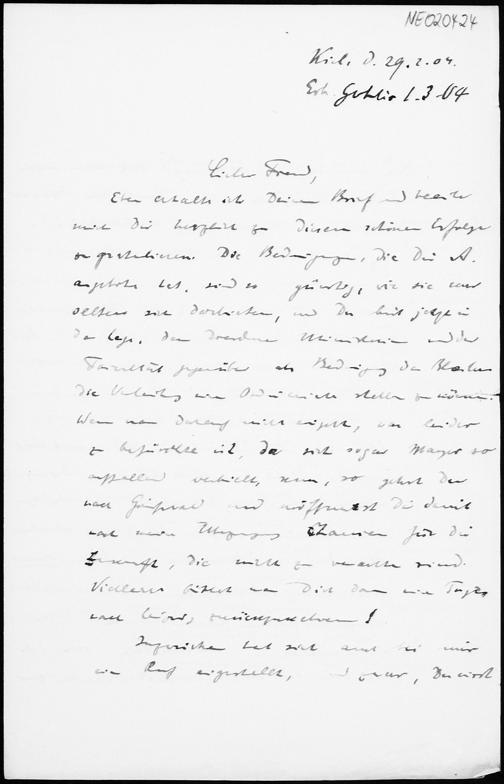 NE020424
Kiel d. 29.2.04.
Erh. 1.3.04
Lieber Freund,
Eben erhalte ich Deinen Brief und beeile
mich Dir herzlich zu diesem schönen Erfolge
zu gratulieren. Die Bedingungen, die Dir A.
angeboten hat, sind so günstig, wie sie nur
selten sich darbieten, und Du bist jetzt in
der Lage, dem Dresdner Ministerium und der
Facultät gegenüber als Bedingung des Bleibens
die eines Ordinariats stellen zu können.
Wenn man darauf nicht eingeht, was leider
zu befürchten ist, da sich sogar Mayer so
auffallend verhielt, so gehst Du
nach Greifswald und eröffnest Dir damit
nach meiner Chancen für die
Zukunft, die nicht zu verachten sind.
Vielleicht bittet man Dich dann eines Tages
nach Leipzig zurückzukehren!
Inzwischen hat sich auch bei mir
ein Ruf eingestellt, und zwar, Du wirst